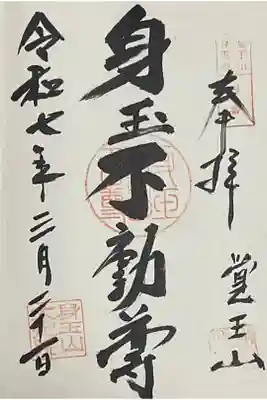 奉拝
覚王山
身玉不動尊
令和七年三月二十日